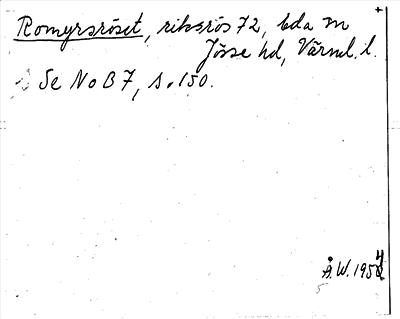 Romyrsröset, riksrös 72, Eda sn
Jösse hd, Värml. l.
Se NoB 7, s. 150.
Å.W. 1954